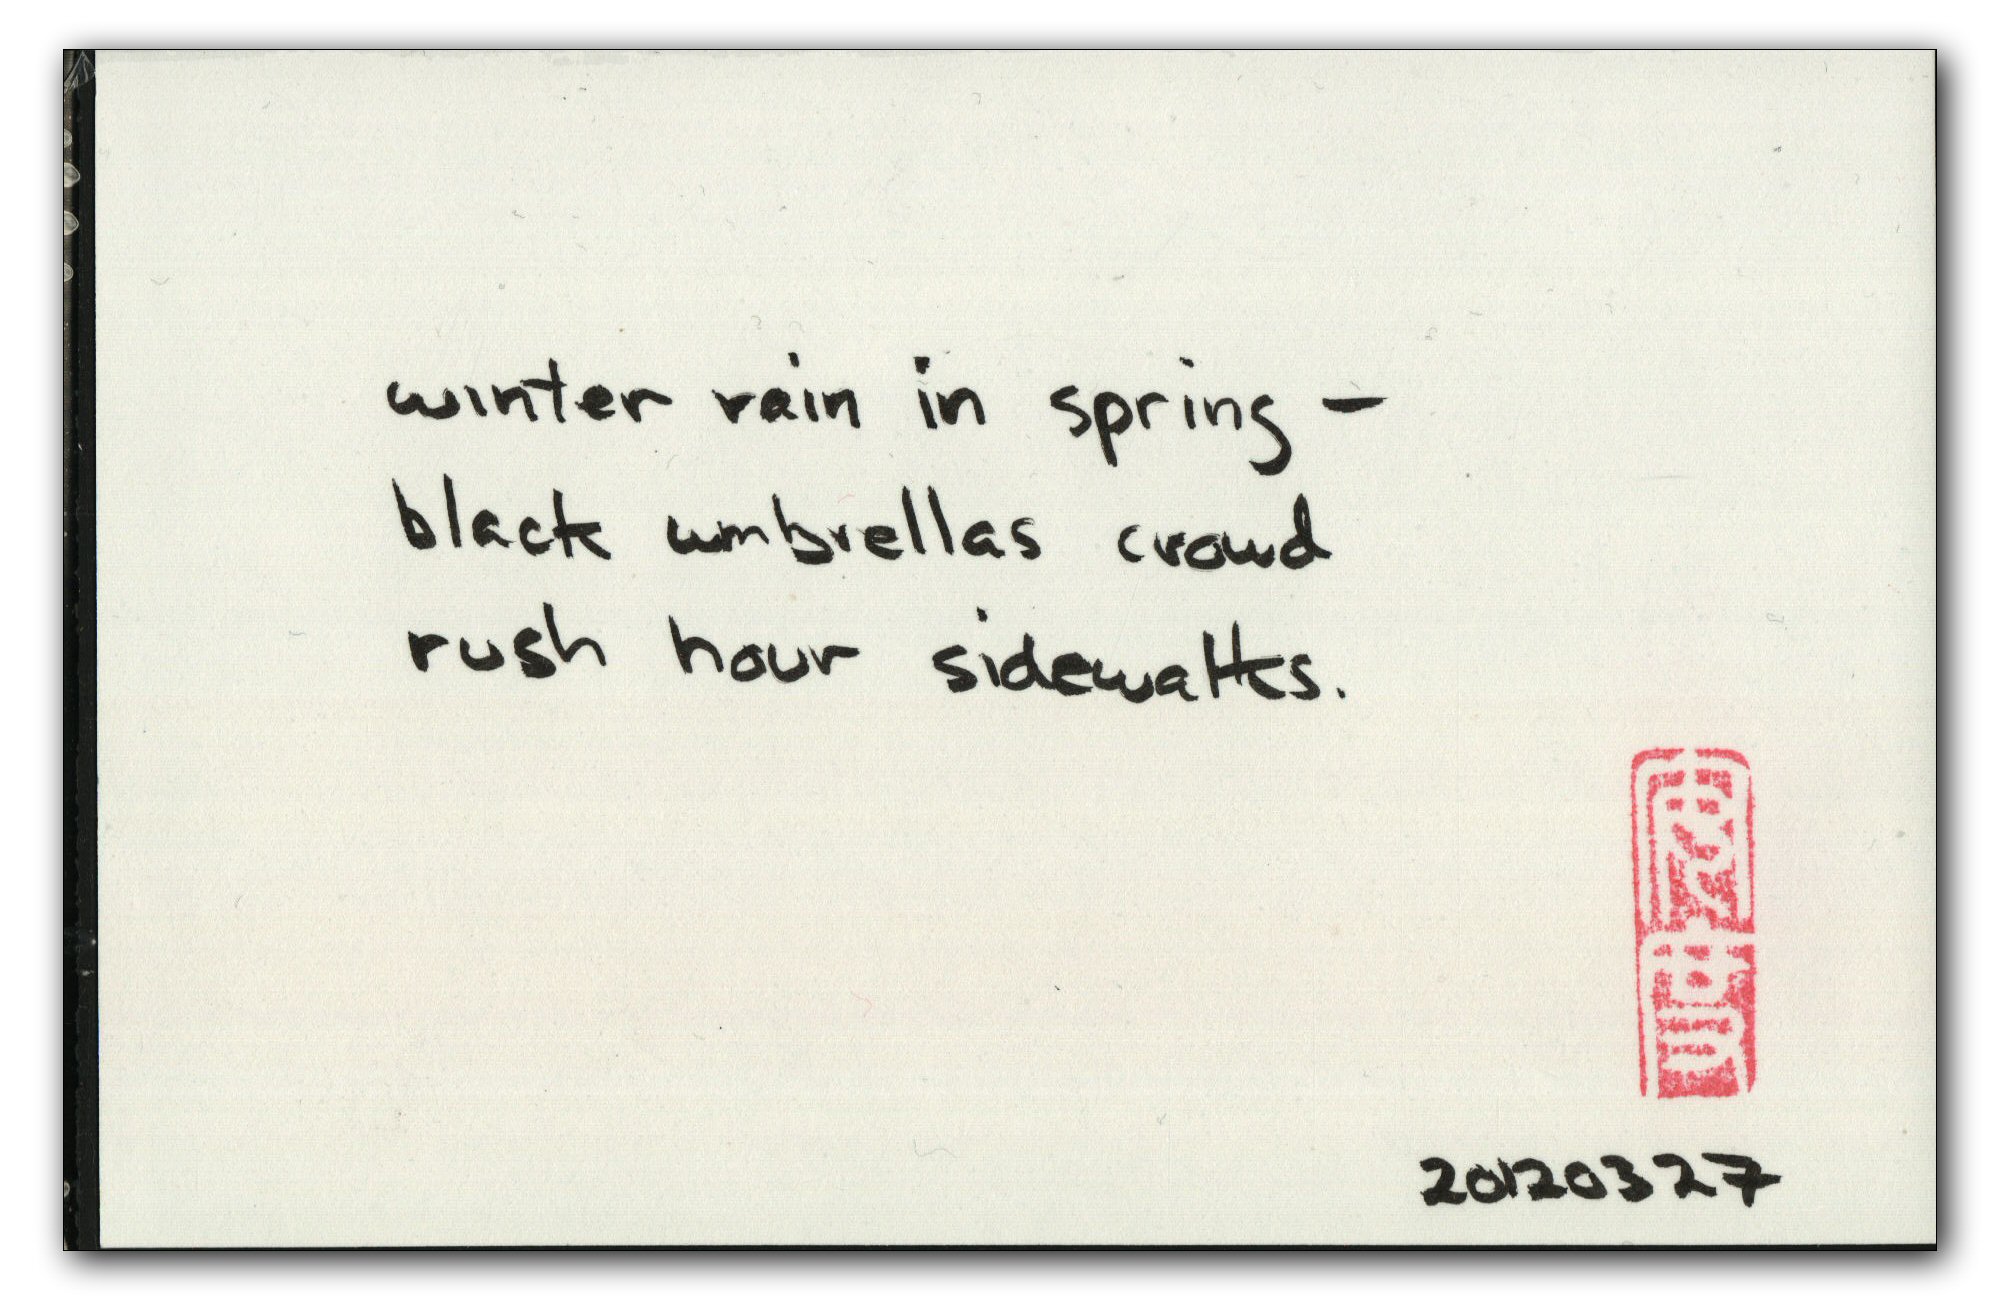 winter rain in spring –
black umbrellas crowd
rush hour sidewalks.
20120327